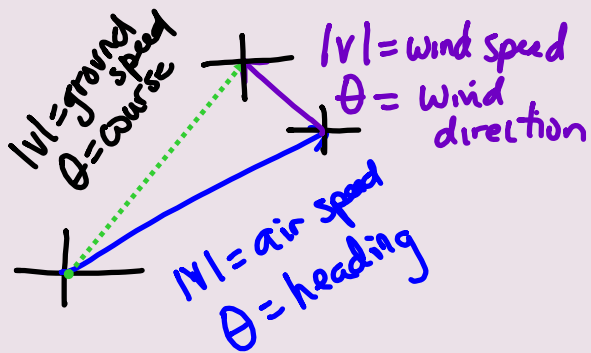 |v| = ground
speed
θ = course
|v| = wind speed
θ = wind
direction
|v| = air speed
θ = heading